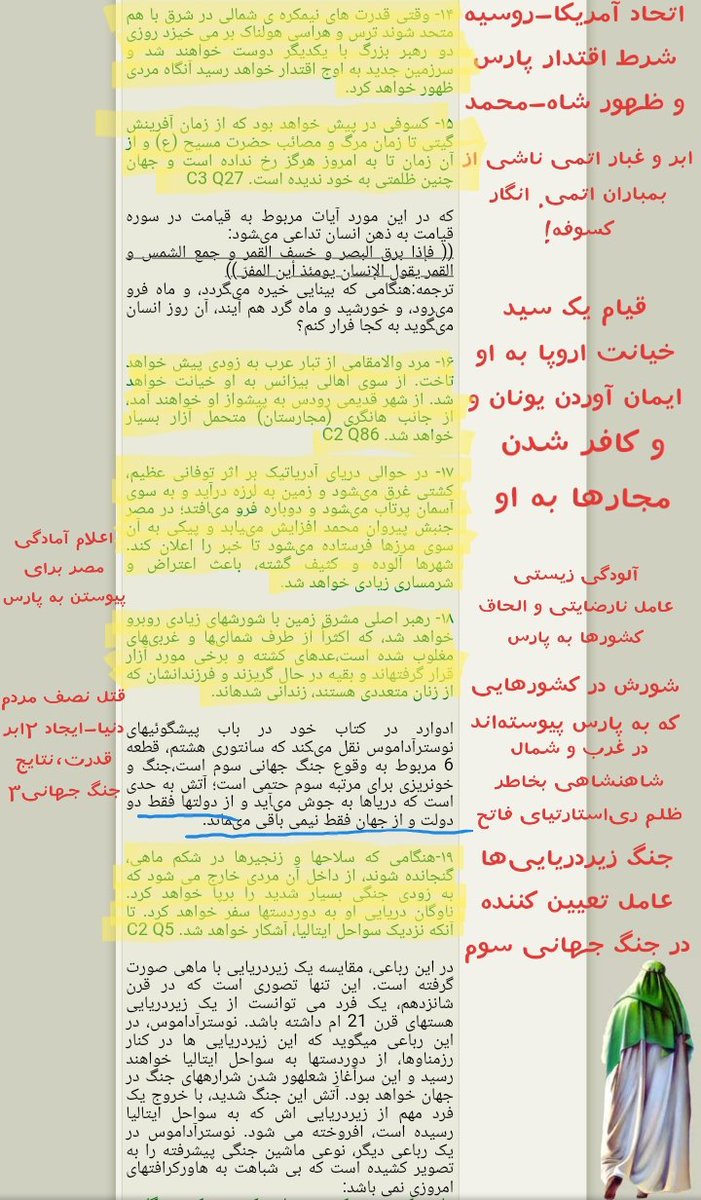 ۱۴- وقتی قدرت های نیمکره ی شمالی در شرق با هم
متحد شوند ترس و هراسی هولناک بر می خیزد روزی
دو رهبر بزرگ با یکدیگر دوست خواهند شد و
سرزمین جدید به اوج اقتدار خواهد رسید آنگاه مردی
ظهور خواهد کرد.
۱۵- کسوفی در پیش خواهد بود که از زمان آفرینش
گیتی تا زمان مرگ و مصائب حضرت مسیح (ع) و از
آن زمان تا به امروز هرگز رخ نداده است و جهان
چنین ظلمتی به خود ندیده است. C3 Q27
که در این مورد آیات مربوط به قیامت در سوره
قیامت به ذهن انسان تداعی می‌شود:
(( فإذا برق البصر و خسف القمر و جمع الشمس و
القمر یقول الإنسان یومئذ أین المفر ))
ترجمه:هنگامی که بینایی خیره می‌گردد، و ماه فرو
می‌رود، و خورشید و ماه گرد هم آیند، آن روز انسان
می‌گوید به کجا فرار کنم؟
۱۶- مرد والامقامی از تبار عرب به زودی پیش خواهد
تاخت. از سوی اهالی بیزانس به او خیانت خواهد
شد. از شهر قدیمی رودس به پیشواز او خواهند آمد.
از جانب هانگری (مجارستان) متحمل آزار بسیار
خواهد شد. C2 Q86
۱۷- در حوالی دریای آدریاتیک بر اثر توفانی عظیم،
کشتی غرق می‌شود و زمین به لرزه درآید و به سوی
آسمان پرتاب می‌شود و دوباره فرو می‌افتد؛ در مصر
جنبش پیروان محمد افزایش می‌یابد و پیکی به آن
سوی مرزها فرستاده می‌شود تا خبر را اعلان کند.
شهرها آلوده و کثیف گشته، باعث اعتراض و
شرمساری زیادی خواهد شد.
۱۸- رهبر اصلی مشرق زمین با شورشهای زیادی روبرو
خواهد شد، که اکثراً از طرف شمالی‌ها و غربی‌های
مغلوب شده است،عده‌ای کشته و برخی مورد آزار
قرار گرفته‌اند و بقیه در حال گریزند و فرزندانشان که
از زنان متعددی هستند، زندانی شده‌اند.
ادوارد در کتاب خود در باب پیشگوئیهای
نوسترآداموس نقل می‌کند که سانتوری هشتم، قطعه
6 مربوط به وقوع جنگ جهانی سوم است،جنگ و
خونریزی برای مرتبه سوم حتمی است؛ آتش به حدی
است که دریاها به جوش می‌آید و از دولتها فقط دو
دولت و از جهان فقط نیمی باقی می‌ماند.
۱۹-هنگامی که سلاحها و زنجیرها در شکم ماهی،
گنجانده شوند، از داخل آن مردی خارج می شود که
به زودی جنگی بسیار شدید را برپا خواهد کرد.
ناوگان دریایی او به دوردستها سفر خواهد کرد. تا
آنکه نزدیک سواحل ایتالیا، آشکار خواهد شد. C2 Q5
در این رباعی، مقایسه یک زیردریایی با ماهی صورت
گرفته است. این تنها تصوری است که در قرن
شانزدهم، یک فرد می توانست از یک زیردریایی
هسته‍ای قرن 21 ام داشته باشد. نوسترآداموس، در
این رباعی میگوید که این زیردریایی ها در کنار
رزمناوها، از دوردستها به سواحل ایتالیا خواهند
رسید و این سرآغاز شعله‍ور شدن شراره‍های جنگ در
جهان خواهد بود. آتش این جنگ شدید، با خروج یک
فرد مهم از زیردریایی اش که به سواحل ایتالیا
رسیده است، افروخته می شود. نوسترآداموس در
یک رباعی دیگر، نوعی ماشین جنگی پیشرفته را به
تصویر کشیده است که بی شباهت به هاورکرافتهای
امروزی نمی باشد:
اتحاد آمریکا-روسیه
شرط اقتدار پارس
و ظهور شاه-محمد
ابر و غبار اتمی ناشی از
بمباران اتمی، انگار
کسوفه!
قیام یک سید
خیانت اروپا به او
ایمان آوردن یونان و
و کافر شدن
مجارها به او
آلودگی زیستی
عامل نارضایتی و الحاق
کشورها به پارس
شورش در کشورهایی
که به پارس پیوسته‌اند
در غرب و شمال
شاهنشاهی بخاطر
ظلم ری‌استارتیای فاتح
جنگ زیردریایی‌ها
عامل تعیین کننده
در جنگ جهانی سوم
اعلام آمادگی
مصر برای
پیوستن به پارس
قتل نصف مردم
دنیا-ایجاد ۲ابر
قدرت،نتایج
جنگ جهانی۳